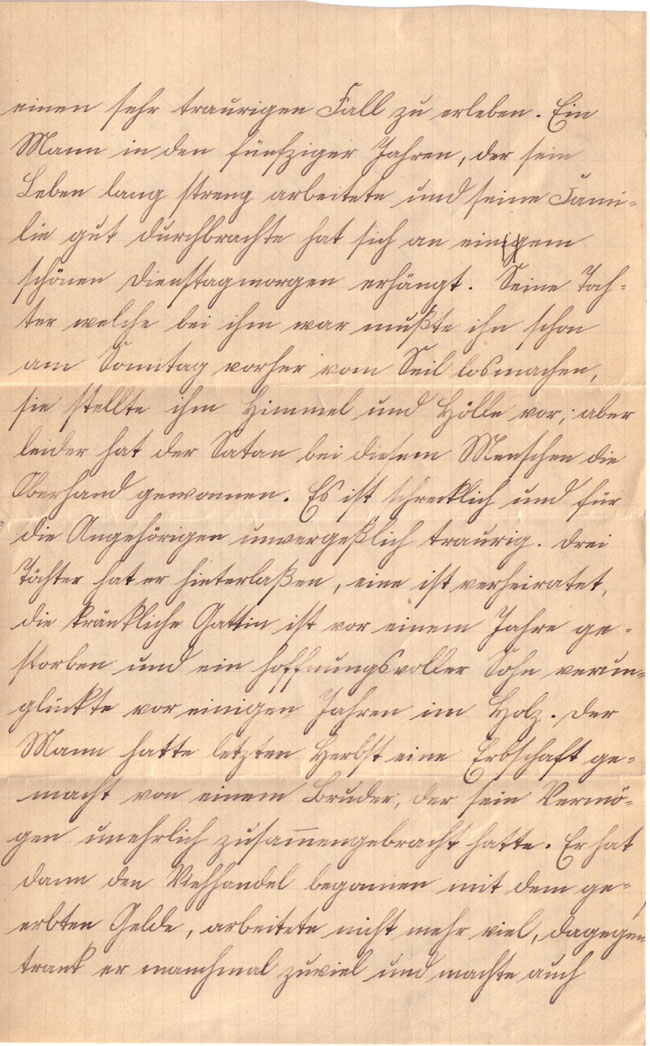 einen sehr traurigen Fall zu erleben. Ein
Mann in den fünfziger Jahren, der sein
Leben lang streng arbeitete und seine Fami-
lie gut durchbrachte hat sich an einem
schönen Dienstagmorgen erhängt. Seine Toch-
ter welche bei ihm war mußte ihn schon
am Sonntag vorher vom Seil losmachen,
sie stellte ihm Himmel und Hölle vor; aber
leider hat der Satan bei diesem Menschen die
Oberhand gewonnen. Es ist schrecklich und für
die Angehörigen unvergeßlich traurig. Drei
Töchter hat er hinterlaßen, eine ist verheiratet,
die kränkliche Gattin ist vor einem Jahre ge-
storben und ein hoffnungsvoller Sohn verun-
glückte vor einigen Jahren im Holz. Der
Mann hatte letzten Herbst eine Erbschaft ge-
macht von einem Bruder, der sein Vermö-
gen unehrlich zusammengebracht hatte. Er hat
dann den Viehhandel begonnen mit dem ge-
erbten Gelde, arbeitete nicht mehr viel, dagegen
trank er manchmal zuviel und machte auch